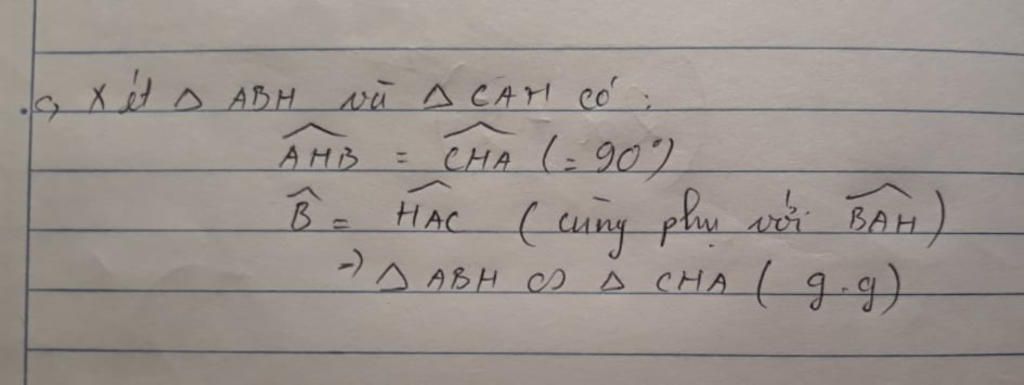 c, Xét △ ABH và △ CAH có :
$\widehat{AHB}$ = $\widehat{CHA}$ (= 90°)
$\widehat{B}$ = $\widehat{HAC}$ ( cùng phụ với $\widehat{BAH}$)
=) △ ABH ∽ △ CHA ( g.g)